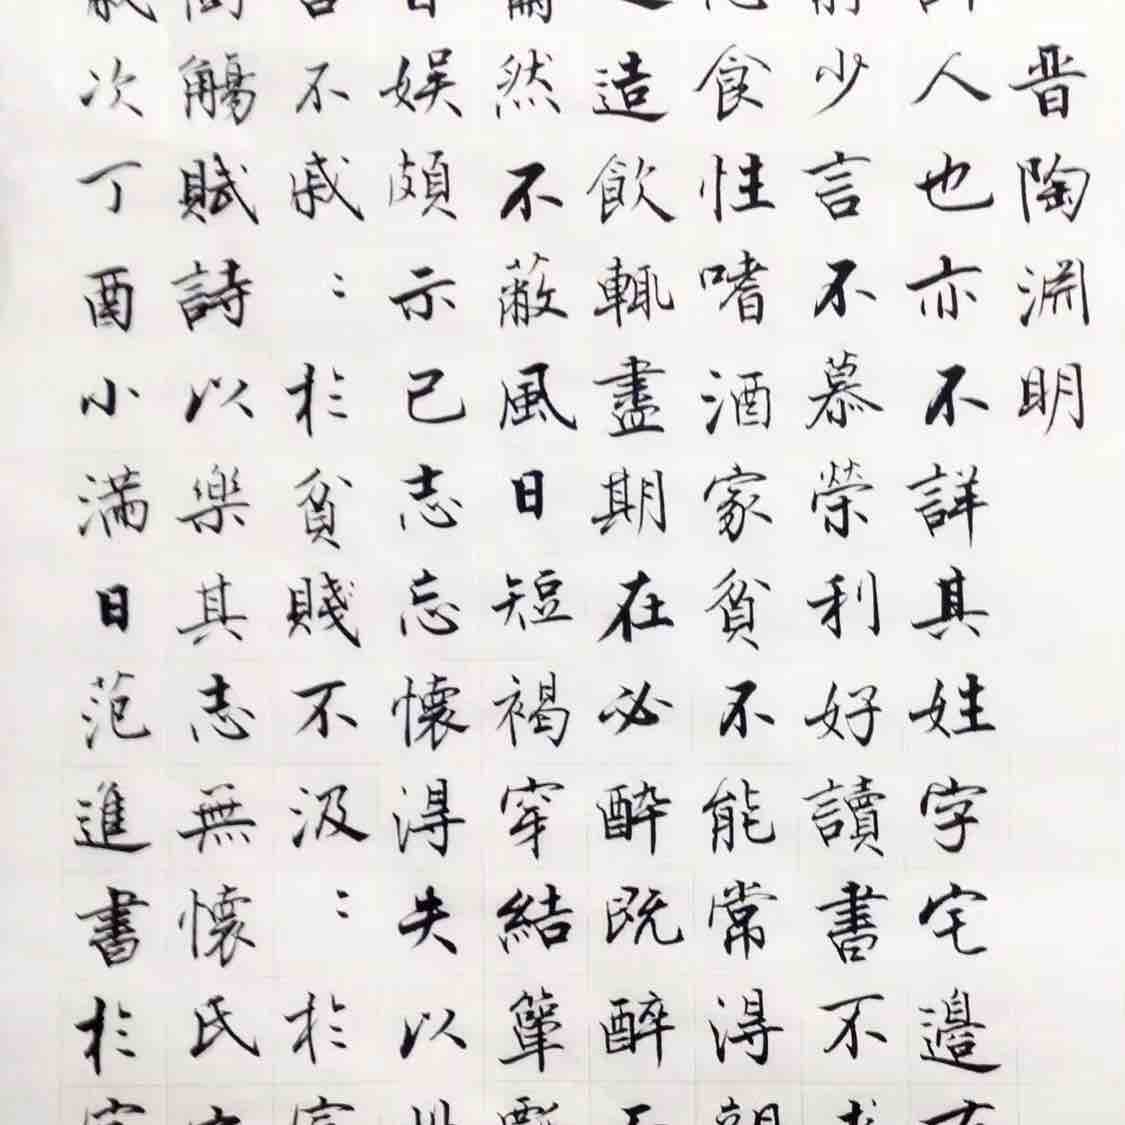 晋陶淵明
人也亦不詳其姓字宅邊
少言不慕榮利好讀書不
食性嗜酒家貧不能常得
造飲輒盡期在必醉既醉
然不蔽風日短褐穿結簞
娱頗示已志忘懷得失以
不戚:於貧賤不汲:於
觴賦詩以樂其志無懷氏
次丁酉小满日范進書於